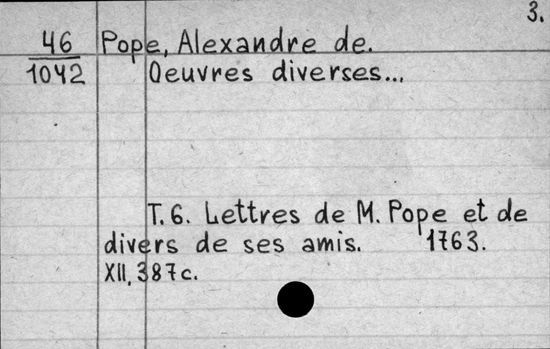 3.
46 Pope, Alexandre de.
1042 Oeuvres diverses...
T. 6. Lettres de M. Pope et de
divers de ses amis. 1763.
XII, 387c.